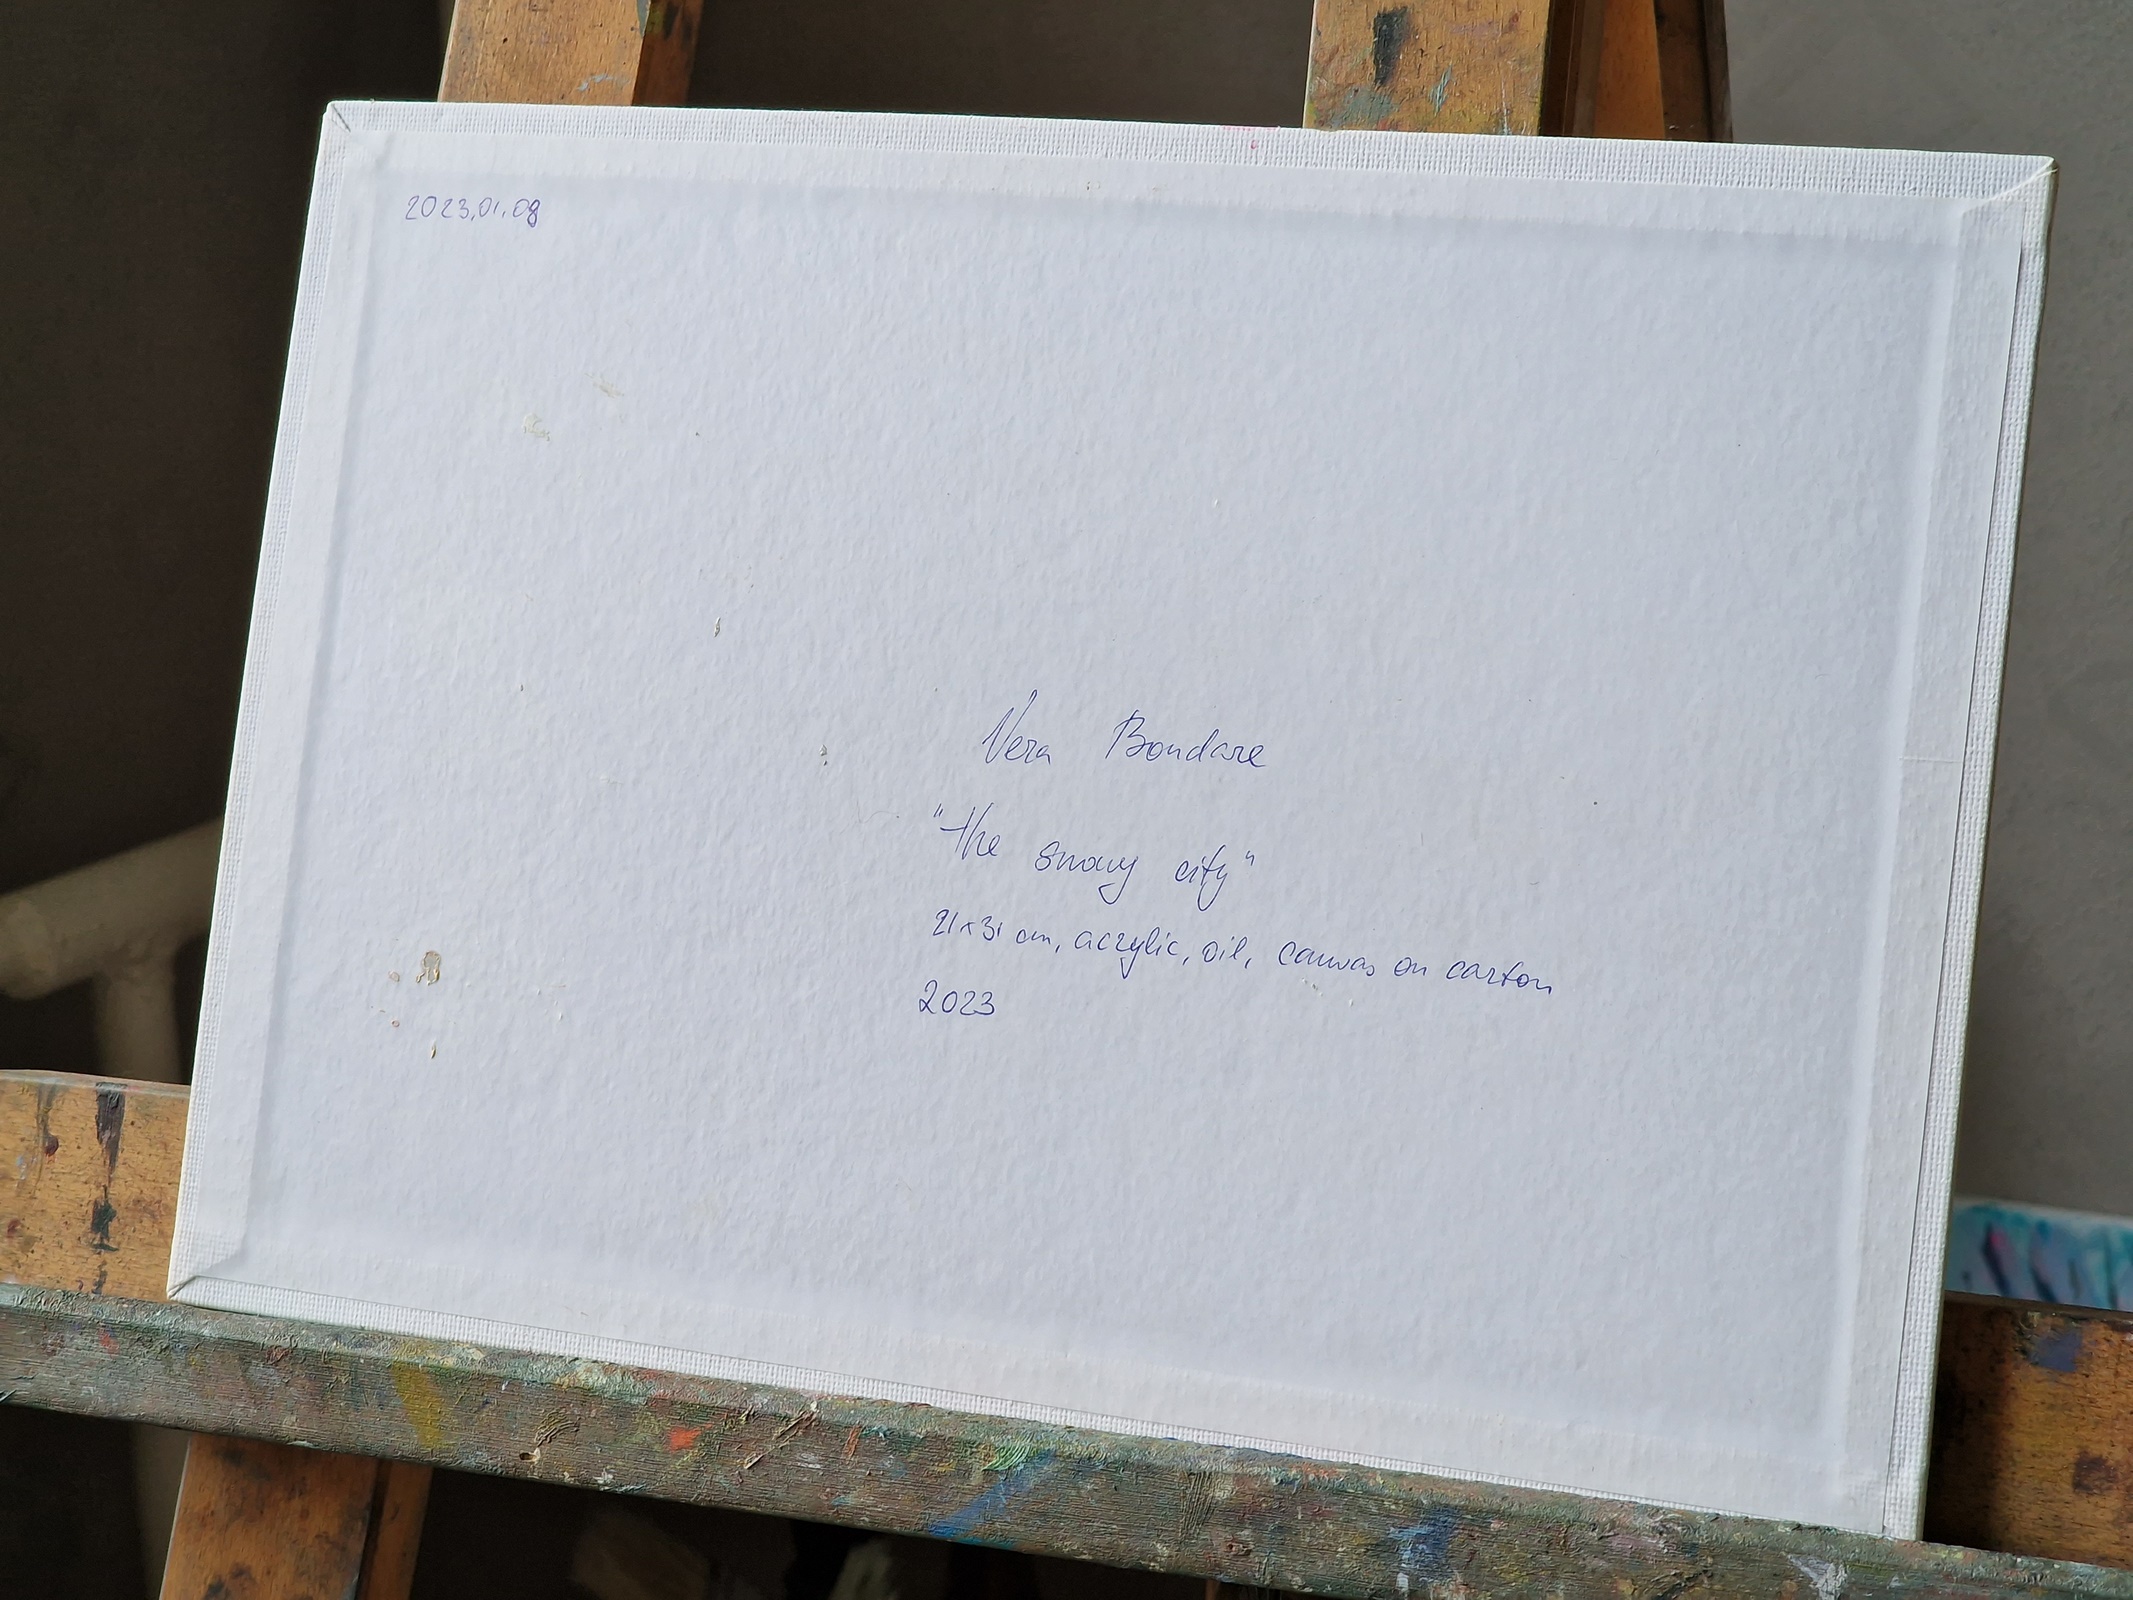 2023.01.08
Vera Bondare
"The snowy city"
21x31 cm, acrylic, oil, canvas on carton
2023